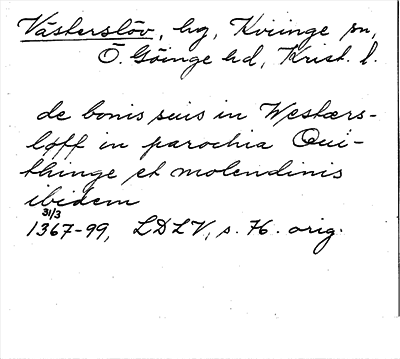 Västerslöv, by, Kviinge sn,
Ö. Göinge hd, Krist. l.
de bonis suis in Westærs-
löff in parochia Qui-
thinge et molendinis
ibidem
31/3
1367-99, LDLV, s. 76. orig.